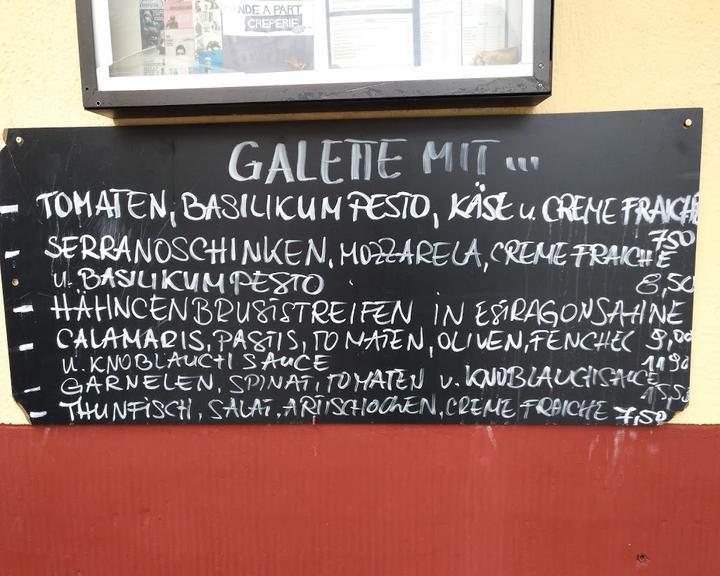 NDE A PART
CREPERIE
GALETTE MIT ...
- TOMATEN, BASILIKUM PESTO, KÄSE u. CREME FRAICHE
7,50
- SERRANOSCHINKEN, MOZZARELA, CREME FRAICHE
u. BASILIKUM PESTO 8,50
- HÄHNCENBRUSTSTREIFEN IN ESTRAGONSAHNE
9,00
- CALAMARIS, PASTIS, TOMATEN, OLIVEN, FENCHEL
u. KNOBLAUCH SAUCE 11,90
- GARNELEN, SPINAT, TOMATEN u. KNOBLAUCHSAUCE
- THUNFISCH, SALAT, ARTISCHOCKEN, CREME FRAICHE 7,50